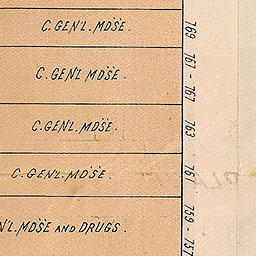 C. GEN'L. MDSE.
769
C. GEN'L MDSE.
761 - 767
C. GEN'L MDSE.
763
C. GEN'L. MDSE.
761
N'L. MDSE AND DRUGS.
759 - 757